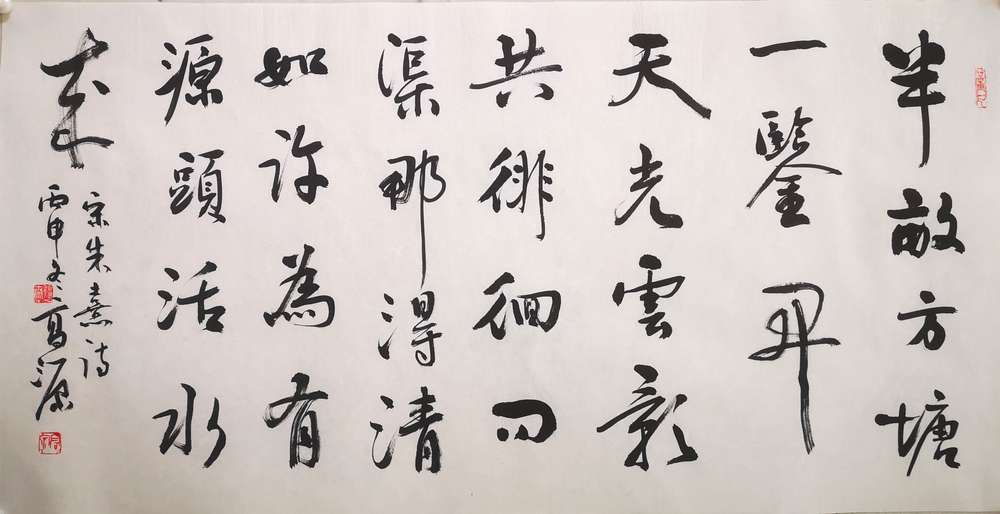 半畝方塘
一鑒開
天光雲影
共徘徊問
渠那得清
如許為有
源頭活水
来
宋朱熹詩
丙申冬